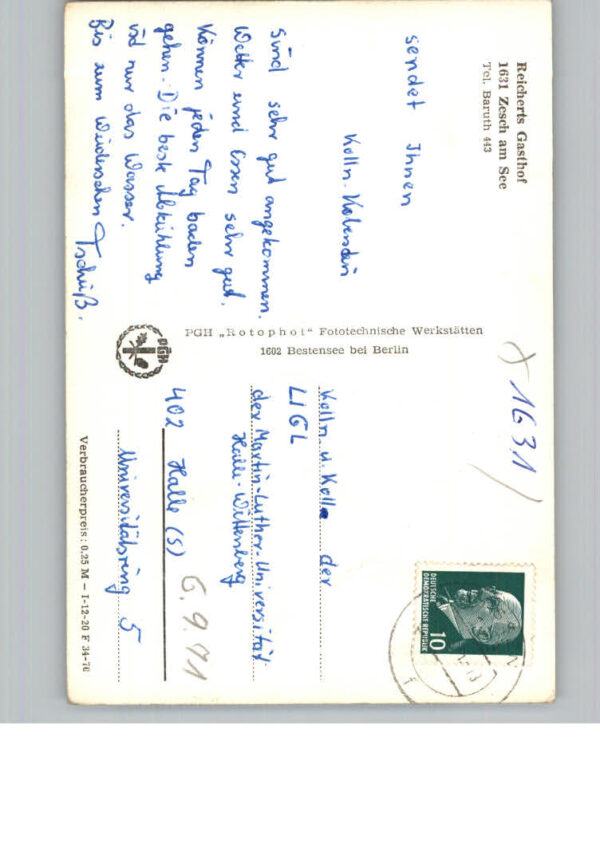 Reicherts Gasthof
1631 Zesch am See
Tel. Baruth 443
sendet Ihnen
Kolln.
sind sehr gut angekommen.
Wetter und Essen sehr gut.
Können jeden Tag baden
gehen. Die beste Abkühlung
ist nur das Wasser.
Bis zum Wiedersehen Tschüß.
PGH „Rotophot“ Fototechnische Werkstätten
1602 Bestensee bei Berlin
PGH
x 1631
DEUTSCHE
DEMOKRATISCHE REPUBLIK
10
Kolln. u. Koll. der
LIGL
der Martin-Luther-Universität
Halle-Wittenberg
402 Halle (S)
Universitätsring 5
6.9.71
Verbraucherpreis: 0,25 M – I-12-20 F 34-70